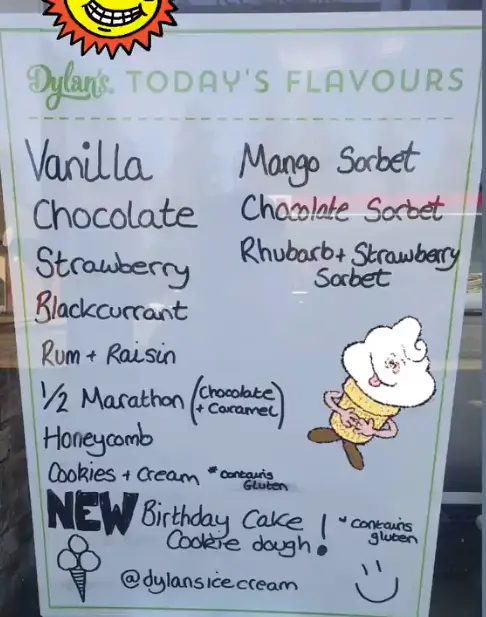 Dylan's. TODAY'S FLAVOURS
Vanilla
Chocolate
Strawberry
Blackcurrant
Rum + Raisin
1/2 Marathon (Chocolate + Caramel)
Honeycomb
Cookies + Cream *contains Gluten
NEW Birthday Cake Cookie dough! *contains gluten
@dylansicecream
Mango Sorbet
Chocolate Sorbet
Rhubarb + Strawberry
Sorbet